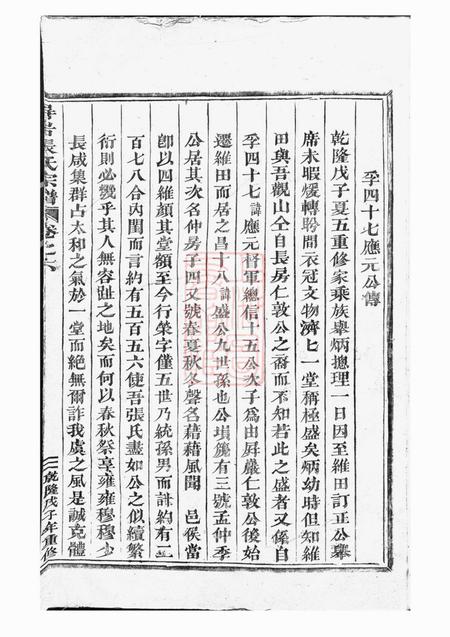 孚四十七應元公傳
乾隆戊子夏五重修家乘族舉炳摠理一日因至維田訂正公舉
席未暇煖轉盼間衣冠文物濟匕一堂稱極盛矣炳幼時但知維
田與吾觀山仝自長房仁敦公之裔而不知若此之盛者又係自
孚四十七諱應元將軍總信十五公次子為由屏巖仁敦公後始
遷維田而居之昌十八諱盛公九世孫也公塤篪有三號孟仲季
公居其次名仲房子四又號春夏秋冬聲名藉藉風聞 邑侯當
卽以四維顏其堂額至今行榮字僅五世乃統孫男而計約有二
百七八合內閨而言約有五百五六使吾張氏盡如公之似續繁
衍則必幾乎其人無容趾之地矣而何以春秋祭享雍雍穆穆少
長咸集群占太和之氣於一堂而絕無爾詐我虞之風是誠克體
屏巖張氏宗譜 卷之六
乾隆戊子年重修